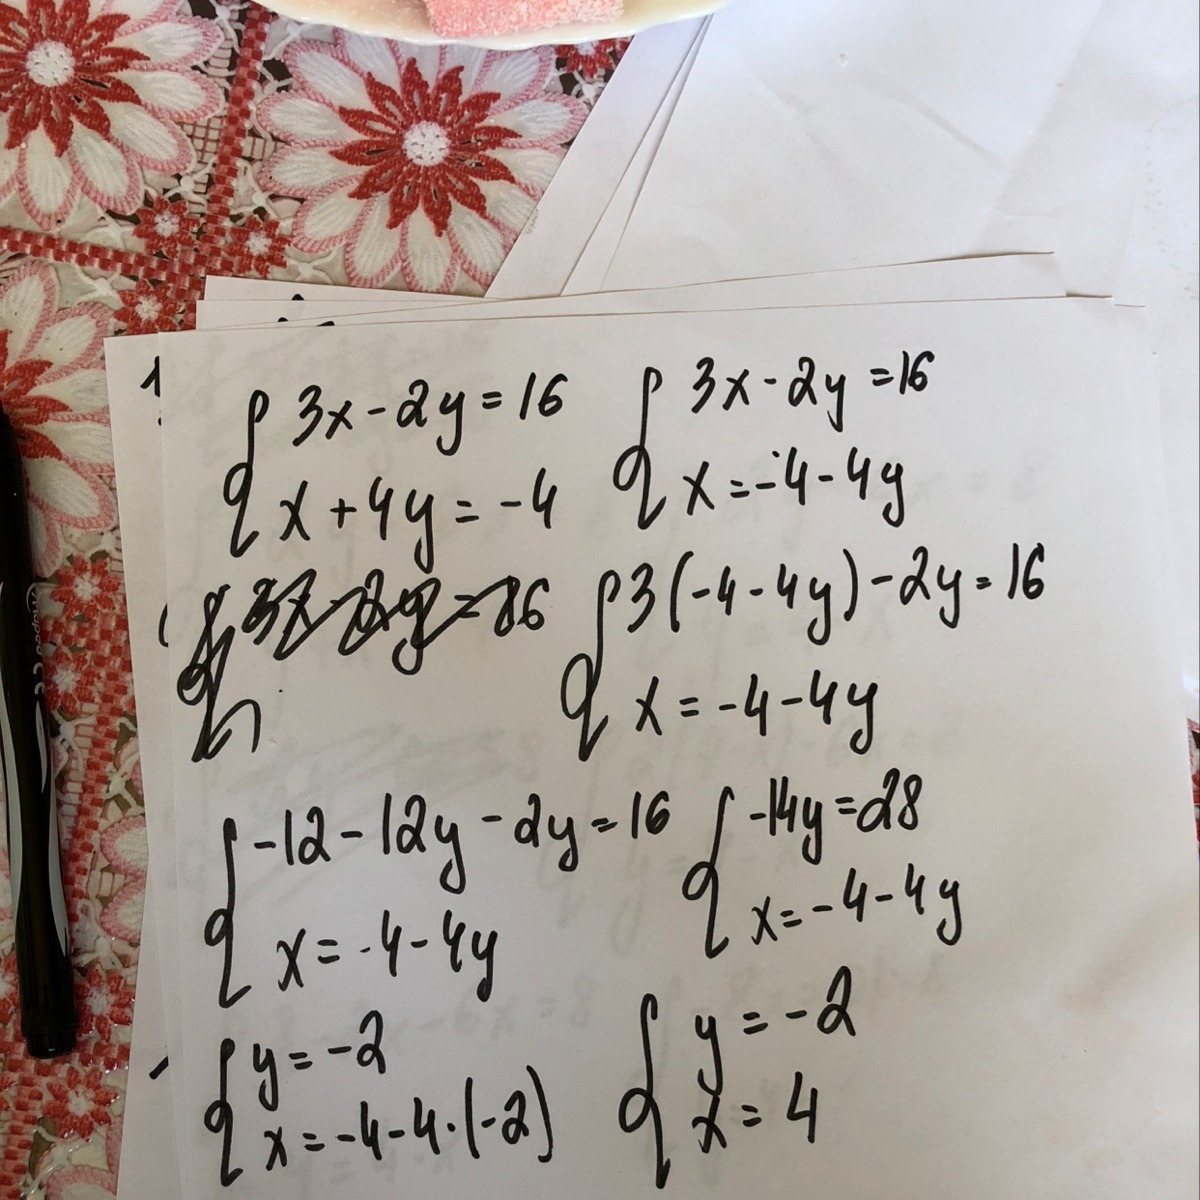 3x-2y=16
x+4y=-4
3x-2y=16
x=-4-4y
3x-2y=16
3(-4-4y)-2y=16
x=-4-4y
-12-12y-2y=16
x=-4-4y
-14y=28
x=-4-4y
y=-2
x=-4-4·(-2)
y=-2
x=4